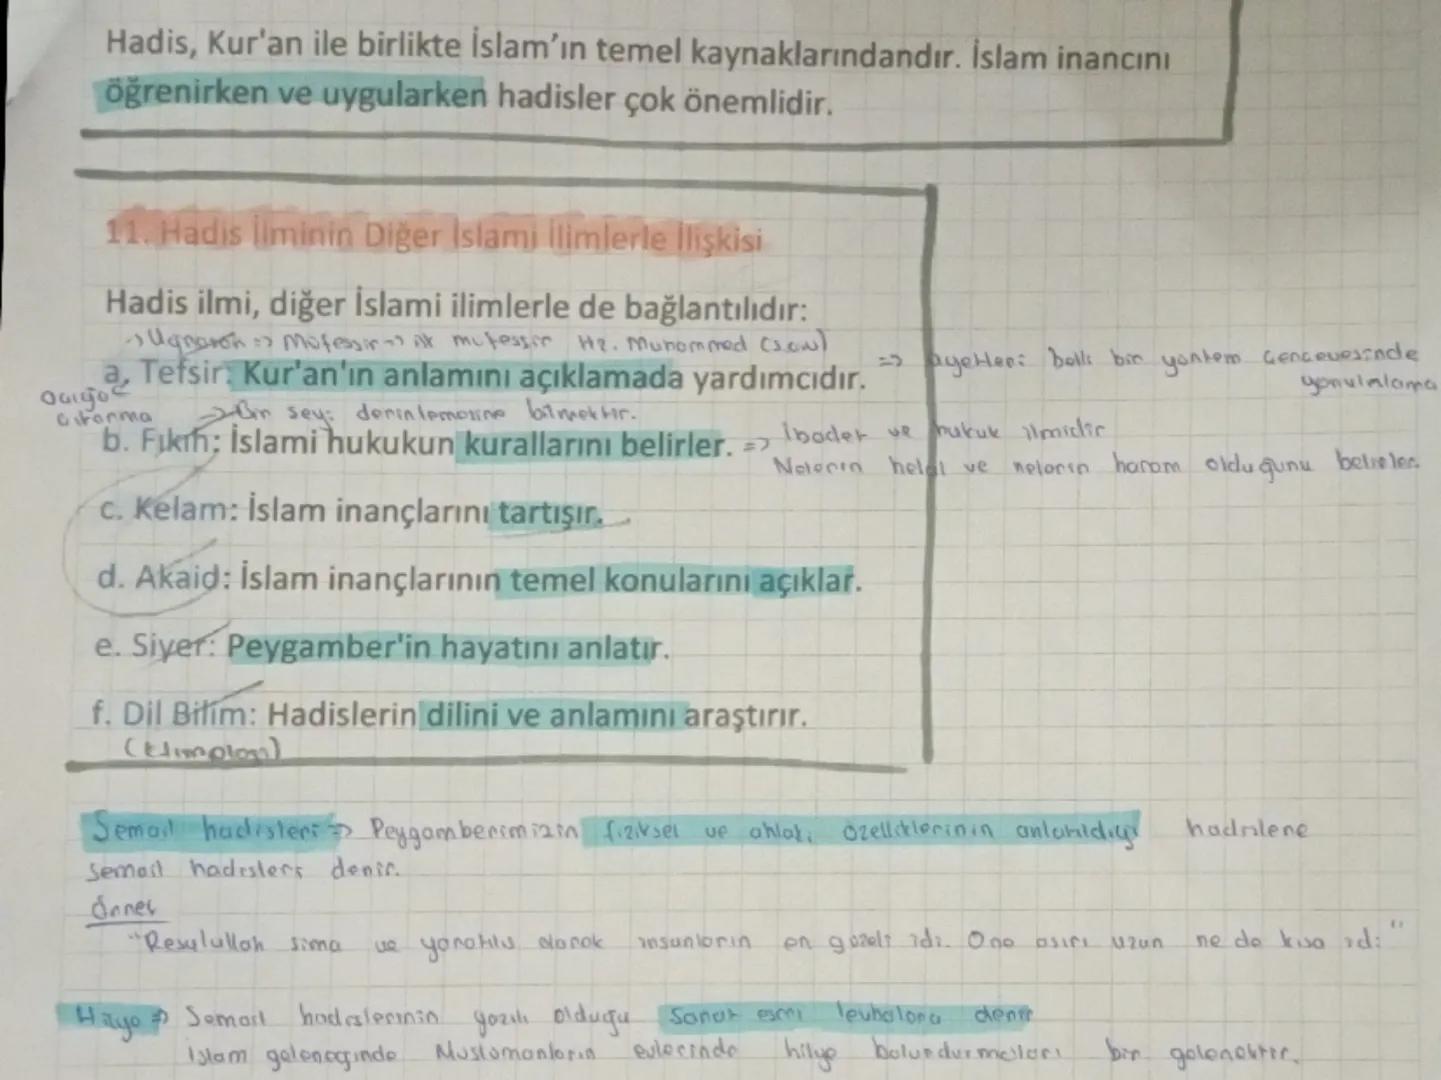 Hadis, Kur'an ile birlikte İslam'ın temel kaynaklarındandır. İslam inancını
öğrenirken ve uygularken hadisler çok önemlidir.
11. Hadis İliminin Diğer İslami İlimlerle İlişkisi
Hadis ilmi, diğer İslami ilimlerle de bağlantılıdır:
=> Müfessir => ilk müfessir Hz. Muhammed (s.a.v)
a. Tefsir: Kur'an'ın anlamını açıklamada yardımcıdır. => Ayetleri belli bir yöntem çerçevesinde
yorumlama
Açığa
çıkarma
→ Bir şeyi derinlemesine bilmektir.
b. Fıkıh: İslami hukukun kurallarını belirler. => İbadet ve hukuk ilmidir
Nelerin helal ve nelerin haram olduğunu belirler.
c. Kelam: İslam inançlarını tartışır.
d. Akaid: İslam inançlarının temel konularını açıklar.
e. Siyer: Peygamber'in hayatını anlatır.
f. Dil Bilim: Hadislerin dilini ve anlamını araştırır.
(Etimoloji)
Şemail hadisleri => Peygamberimizin fiziksel ve ahlaki özelliklerinin anlatıldığı hadislere
şemail hadisleri denir.
Örnek
"Resulullah sima ve yaratılış olarak insanların en güzeli idi. Ona aşırı uzun ne de kısa idi"
Hilye => Şemail hadislerinin yazılı olduğu sanat eseri levhalara denir
İslam geleneğinde Müslümanların evlerinde hilye bulundurmaları bir gelenektir.